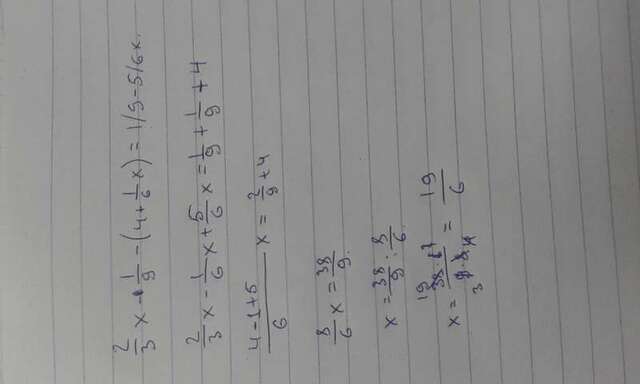 2/3 x - 1/9 - (4 + 1/6 x) = 1/9 - 5/6 x.
2/3 x - 1/6 x + 5/6 x = 1/9 + 1/9 + 4
4-1+5/6 x = 2/9 + 4
8/6 x = 38/9.
x = 38/9 : 8/6.
x = 38·6/9·8 = 19/6